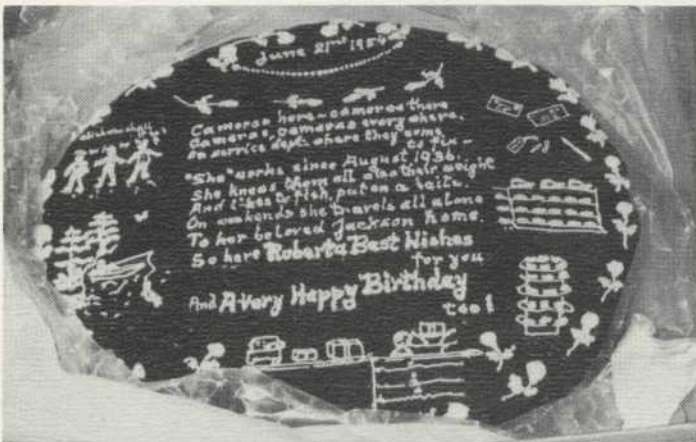 June 21st 195
Cameras here - cameras there
Cameras, cameras every where.
on service dept. where they come
to fix -
"She" works since August 1936.
She knows them all also their weight
And likes to fish, put on a bait.
On weekends she travels all alone
To her beloved Jackson home.
So here Roberta Best Wishes
for you
And A Very Happy Birthday
too!